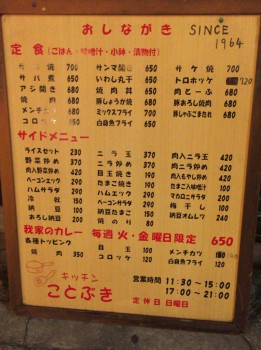 おしながき SINCE 1964
定食(ごはん・味噌汁・小鉢・漬物付)
焼 700 サンマ開き 650 サケ焼 700
サバ煮 700 いわし丸干 650 トロホッケ 720
アジ開き 680 焼肉丼 650 肉とーふ 680
焼肉 680 豚しょうが焼 680 豚おろし焼肉 680
メンチカツ 680 ミックスフライ 700 豚しゃぶごまだれ 680
コロッケ 白身魚フライ 650
サイドメニュー
ライスセット 230 ニラ玉 370 肉入ニラ玉 420
野菜炒め 370 ニラ炒め 370 肉入ニラ炒め 420
肉入野菜炒め 420 目玉焼き 370 肉入もやし炒め 420
ベーコンエッグ 370 たまご焼き 370 たまご入味噌汁
ハムサラダ 300 ハムエッグ 370 マカロニサラダ 200
冷奴 150 納豆 150 梅干し 100
納豆 100 納豆たまご 150 納豆オムレツ 240
おろし納豆 200 焼のり 80
我家のカレー 毎週火・金曜日限定 650
各種トッピング 目玉 100 メンチカツ
焼肉 350 コロッケ 120 白身魚フライ
キッチン
ことぶき
営業時間 11:30~15:00
17:00~21:00
定休日 日曜日